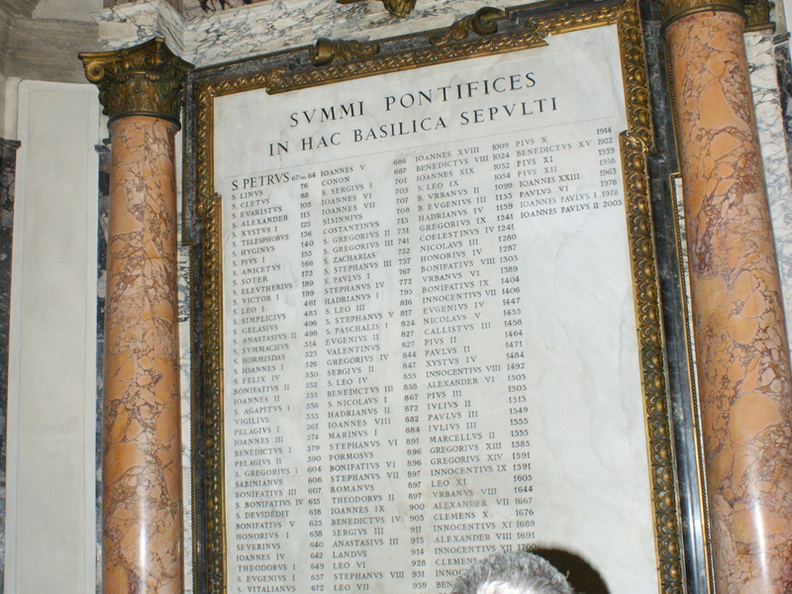 SVMMI PONTIFICES
IN HAC BASILICA SEPVLTI
S. PETRVS 67 vel 64
S. LINVS 76
S. CLETVS 88
S. EVARISTVS 105
S. ALEXANDER 115
S. XYSTVS I 125
S. TELESPHORVS 136
S. HYGINVS 140
S. PIVS I 155
S. ANICETVS 166
S. SOTER 175
S. ELEVTHERIVS 189
S. VICTOR I 199
S. LEO I 461
S. SIMPLICIVS 483
S. GELASIVS 496
S. ANASTASIVS II 498
S. SYMMACHVS 514
S. HORMISDAS 523
S. IOANNES I 526
S. FELIX IV 530
BONIFATIVS II 532
IOANNES II 535
S. AGAPITVS I 536
VIGILIVS 555
PELAGIVS I 561
IOANNES III 574
BENEDICTVS I 579
PELAGIVS II 590
S. GREGORIVS I 604
SABINIANVS 606
BONIFATIVS III 607
S. BONIFATIVS IV 615
S. DEVSDEDIT 618
BONIFATIVS V 625
HONORIVS I 638
SEVERINVS 640
IOANNES IV 642
THEODORVS I 649
S. EVGENIVS I 657
S. VITALIANVS 672
IOANNES V 686
CONON 687
S. SERGIVS I 701
IOANNES VI 705
IOANNES VII 707
SISINNIVS 708
COSTANTINVS 715
S. GREGORIVS II 731
S. GREGORIVS III 741
S. ZACHARIAS 752
S. STEPHANVS III 757
S. PAVLVS I 767
STEPHANVS IV 772
HADRIANVS I 795
S. LEO III 816
S. STEPHANVS V 817
S. PASCHALIS I 824
EVGENIVS II 827
VALENTINVS 827
GREGORIVS IV 844
SERGIVS II 847
S. LEO IV 855
BENEDICTVS III 858
S. NICOLAVS I 867
HADRIANVS II 872
IOANNES VIII 882
MARINVS I 884
STEPHANVS VI 891
FORMOSVS 896
BONIFATIVS VI 896
STEPHANVS VII 897
ROMANVS 897
THEODORVS II 897
IOANNES IX 900
BENEDICTVS IV 903
SERGIVS III 911
ANASTASIVS III 913
LANDVS 914
LEO VI 928
STEPHANVS VIII 931
LEO VII 939
IOANNES XVIII 1009
BENEDICTVS VIII 1024
IOANNES XIX 1032
S. LEO IX 1054
B. VRBANVS II 1099
B. EVGENIVS III 1153
HADRIANVS IV 1159
GREGORIVS IX 1241
COELESTINVS IV 1241
NICOLAVS III 1280
HONORIVS IV 1287
BONIFATIVS VIII 1303
VRBANVS VI 1389
BONIFATIVS IX 1404
INNOCENTIVS VII 1406
EVGENIVS IV 1447
NICOLAVS V 1455
CALLISTVS III 1458
PIVS II 1464
PAVLVS II 1471
XYSTVS IV 1484
INNOCENTIVS VIII 1492
ALEXANDER VI 1503
PIVS III 1503
IVLIVS II 1513
PAVLVS III 1549
IVLIVS III 1555
MARCELLVS II 1555
GREGORIVS XIII 1585
GREGORIVS XIV 1591
INNOCENTIVS IX 1591
LEO XI 1605
VRBANVS VIII 1644
ALEXANDER VII 1667
CLEMENS X 1676
INNOCENTIVS XI 1689
ALEXANDER VIII 1691
INNOCENTIVS XII 1700
CLEMENS
INNOCENTIVS
BEN
PIVS X 1914
BENEDICTVS XV 1922
PIVS XI 1939
PIVS XII 1958
IOANNES XXIII 1963
PAVLVS VI 1978
IOANNES PAVLVS I 1978
IOANNES PAVLVS II 2005